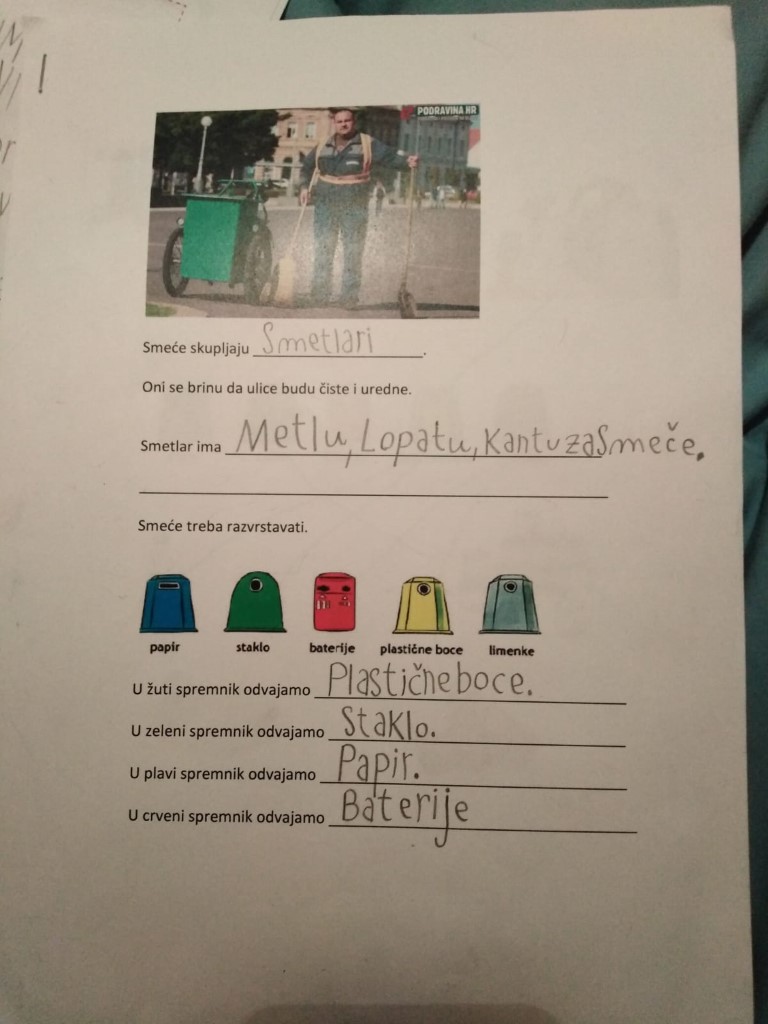 PODRAVINA.HR
Smeće skupljaju Smetlari.
Oni se brinu da ulice budu čiste i uredne.
Smetlar ima Metlu, Lopatu, Kantu za Smeče.
Smeće treba razvrstavati.
papir staklo baterije plastične boce limenke
U žuti spremnik odvajamo Plastične boce.
U zeleni spremnik odvajamo Staklo.
U plavi spremnik odvajamo Papir.
U crveni spremnik odvajamo Baterije